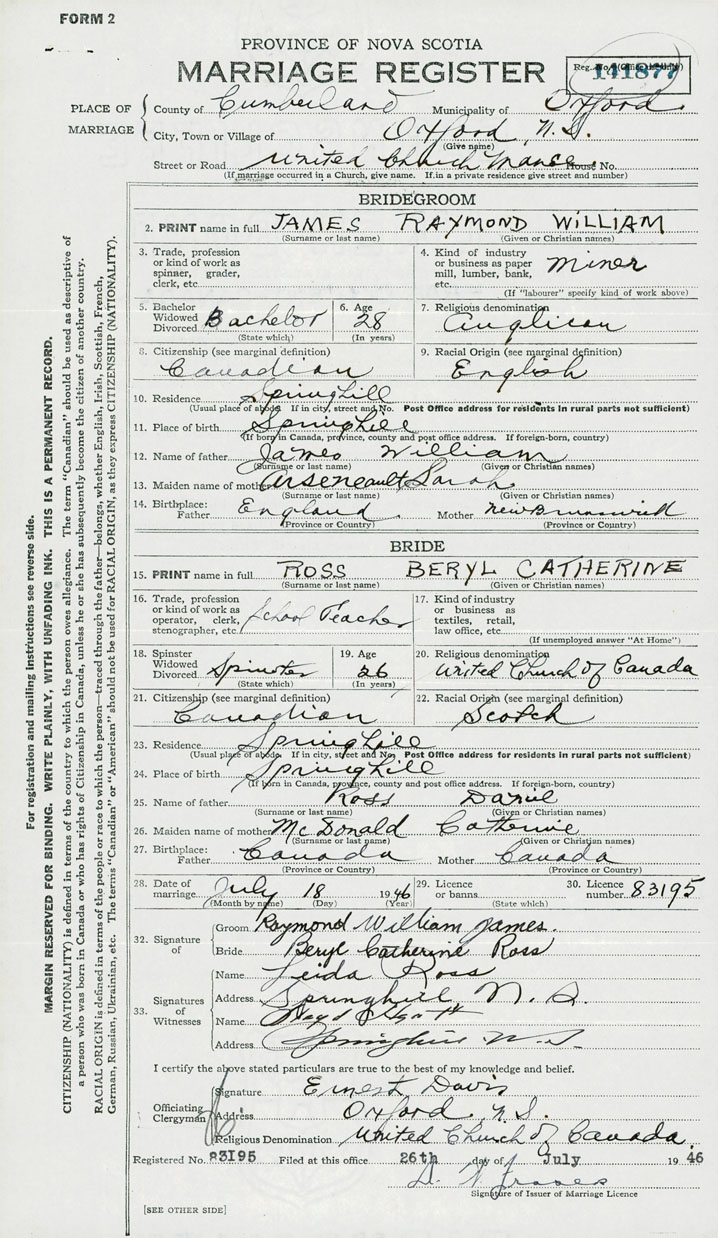 FORM 2
PROVINCE OF NOVA SCOTIA
MARRIAGE REGISTER
Reg. No. 141877
PLACE OF MARRIAGE
County of Cumberland Municipality of Oxford
City, Town or Village of Oxford, N.S.
(Give name)
Street or Road United Church Manse House No.
(If marriage occurred in a Church, give name. If in a private residence give street and number)
BRIDEGROOM
2. PRINT name in full JAMES RAYMOND WILLIAM
(Surname or last name) (Given or Christian names)
3. Trade, profession or kind of work as spinner, grader, clerk, etc.
4. Kind of industry or business as paper mill, lumber, bank, etc. Miner
(If "labourer" specify kind of work above)
5. Bachelor Widowed Divorced Bachelor
(State which)
6. Age 28
(In years)
7. Religious denomination Anglican
8. Citizenship (see marginal definition) Canadian
9. Racial Origin (see marginal definition) English
10. Residence Springhill
(Usual place of abode. If in city, street and No. Post Office address for residents in rural parts not sufficient)
11. Place of birth Springhill
(If born in Canada, province, county and post office address. If foreign-born, country)
12. Name of father James William
(Surname or last name) (Given or Christian names)
13. Maiden name of mother Arseneault Sarah
(Surname or last name) (Given or Christian names)
14. Birthplace: Father England Mother New Brunswick
(Province or Country) (Province or Country)
BRIDE
15. PRINT name in full ROSS BERYL CATHERINE
(Surname or last name) (Given or Christian names)
16. Trade, profession or kind of work as operator, clerk, stenographer, etc. School Teacher
17. Kind of industry or business as textiles, retail, law office, etc.
(If unemployed answer "At Home")
18. Spinster Widowed Divorced Spinster
(State which)
19. Age 26
(In years)
20. Religious denomination United Church of Canada
21. Citizenship (see marginal definition) Canadian
22. Racial Origin (see marginal definition) Scotch
23. Residence Springhill
(Usual place of abode. If in city, street and No. Post Office address for residents in rural parts not sufficient)
24. Place of birth Springhill
(If born in Canada, province, county and post office address. If foreign-born, country)
25. Name of father Ross Daniel
(Surname or last name) (Given or Christian names)
26. Maiden name of mother McDonald Catherine
(Surname or last name) (Given or Christian names)
27. Birthplace: Father Canada Mother Canada
(Province or Country) (Province or Country)
28. Date of marriage July 18 1946
(Month by name) (Day) (Year)
29. Licence or banns
(State which)
30. Licence number 83195
32. Signature of
Groom Raymond William James.
Bride Beryl Catherine Ross
33. Signatures of Witnesses
Name Leida Ross
Address Springhill N.S.
Name
Address Springhill N.S.
I certify the above stated particulars are true to the best of my knowledge and belief.
Officiating Clergyman
Signature Ernest Davis
Address Oxford, N.S.
Religious Denomination United Church of Canada.
Registered No. 83195 Filed at this office 26th day of July 1946
D. N. Fraser
Signature of Issuer of Marriage Licence
[SEE OTHER SIDE]
For registration and mailing instructions see reverse side.
MARGIN RESERVED FOR BINDING. WRITE PLAINLY, WITH UNFADING INK. THIS IS A PERMANENT RECORD.
CITIZENSHIP (NATIONALITY) is defined in terms of the country to which the person owes allegiance. The term "Canadian" should be used as descriptive of
a person who was born in Canada or who has rights of Citizenship in Canada, unless he or she has subsequently become the citizen of another country.
RACIAL ORIGIN is defined in terms of the people or race to which the person—traced through the father—belongs, whether English, Irish, Scottish, French,
German, Russian, Ukrainian, etc. The terms "Canadian" or "American" should not be used for RACIAL ORIGIN, as they express CITIZENSHIP (NATIONALITY).